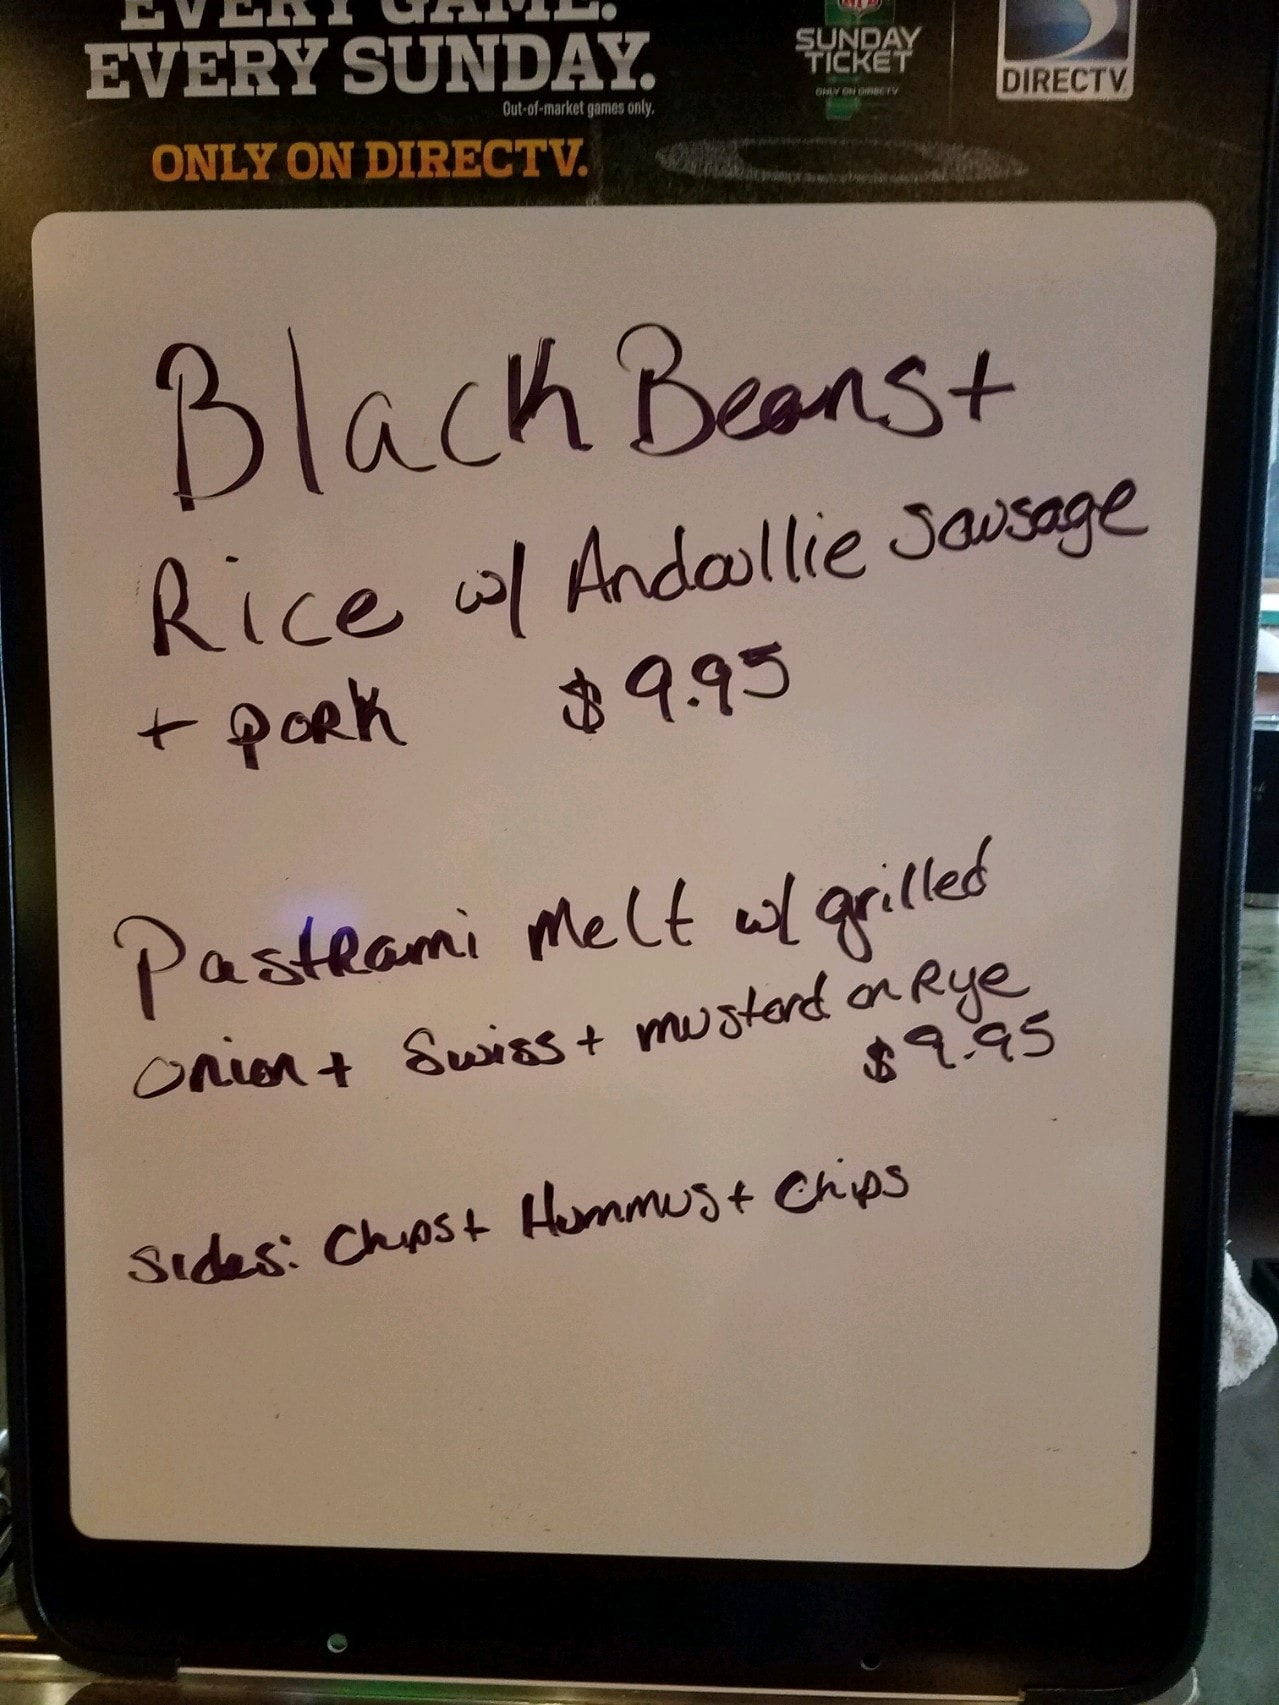 EVERY GAME.
EVERY SUNDAY.
Out-of-market games only.
ONLY ON DIRECTV.
NFL
SUNDAY
TICKET
ONLY ON DIRECTV
DIRECTV
Black Beans +
Rice w/ Andoullie Sausage
+ pork $9.95
Pastrami Melt w/ grilled
onion + Swiss + mustard on Rye
$9.95
Sides: Chips + Hummus + Chips